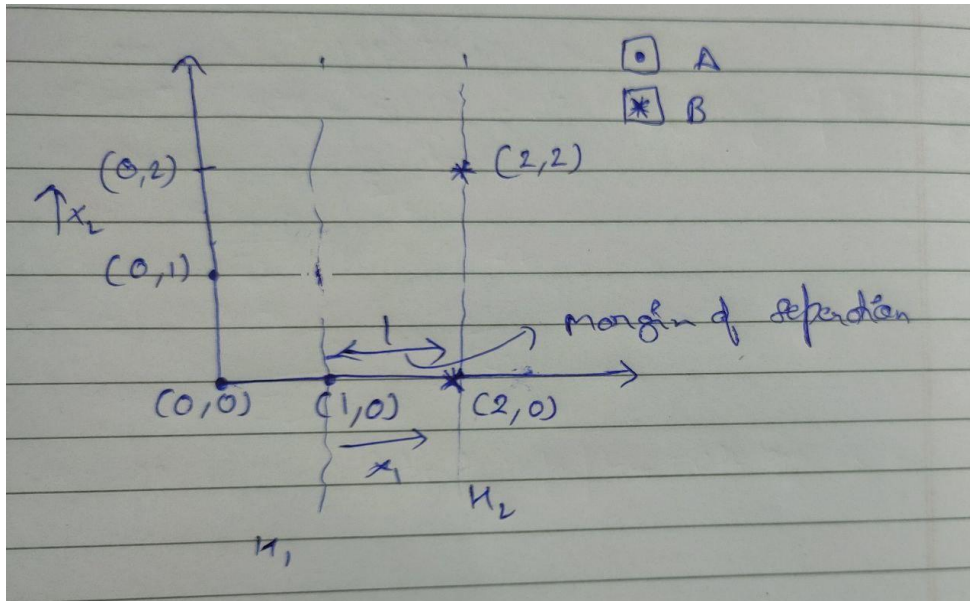 A
B
(0,2)
(2,2)
x₂
(0,1)
1
margin of seperation
(0,0)
(1,0)
(2,0)
x₁
H₂
H₁